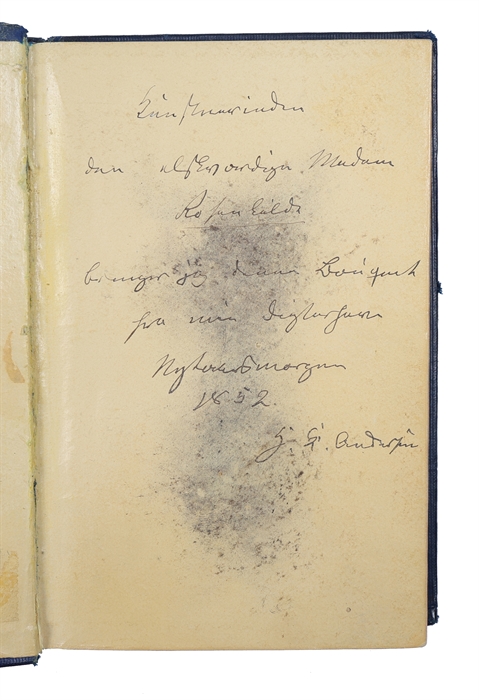 Künstnerinden
den elskværdige Madam
Rosenkilde
bringer jeg denne Bouquet
fra min Digterhave
Nytaarsmorgen
1852.
H. C. Andersen